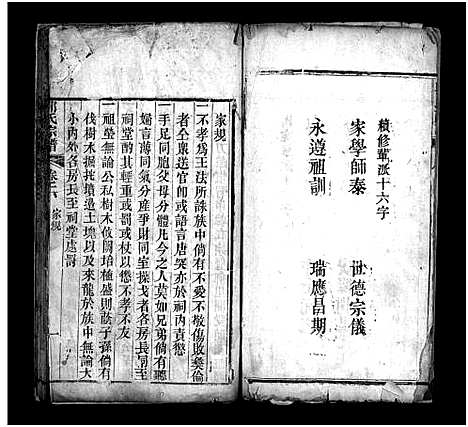 續修輩派十六字
家學師泰　世德宗儀
永遵祖訓　瑞應昌期
家規
一不孝爲王法所誅族中倘有不愛不敬傷敗彝倫
者仝衆送官師或語言唐突亦於祠內責懲
一弟兄同胞父母凡今之人莫如兄弟倘有
婦言薄同氣分產爭財同室操戈者各房長前至
祠堂酌其輕重或罰或杖以懲不孝不友
一祖塋無論公私樹木攸關培植盛則蔭子孫倘有
伐樹木掘抷墳邊土塊以及來龍於族中無論大
小丙外各房長至祠堂處罰
氏宗譜
卷之六
家規
一